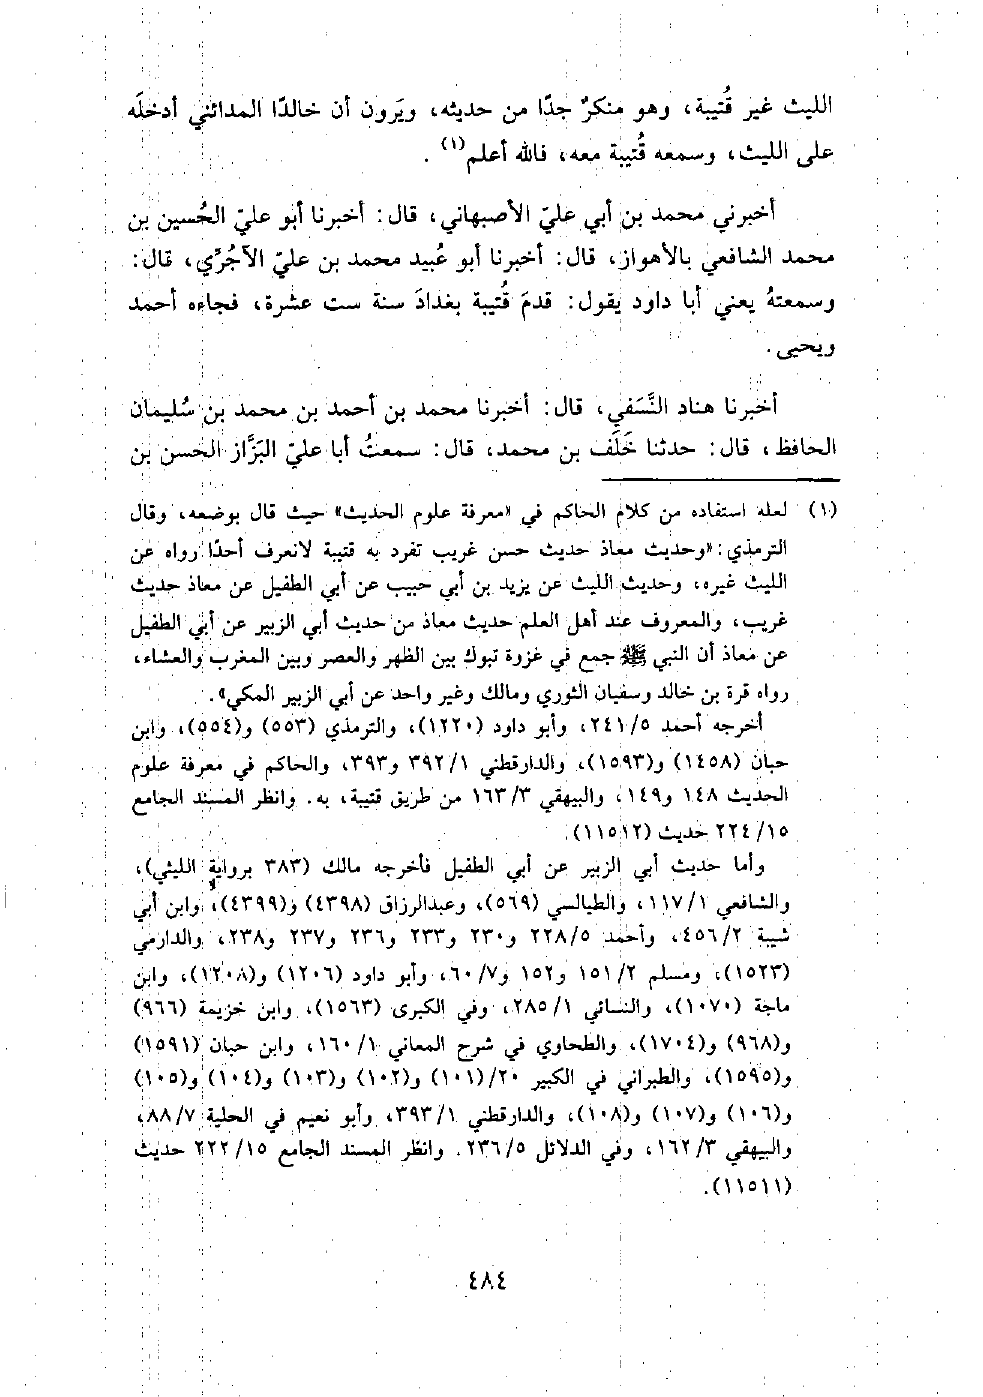 الليث غير قُتيبة، وهو منكرٌ جدًا من حديثه، ويَرون أن خالدًا المدائني أدخلَه
على الليث، وسمعه قُتيبة معه، فالله أعلم(١) .
أخبرني محمد بن أبي عليّ الأصبهاني، قال: أخبرنا أبو عليّ الحُسين بن
محمد الشافعي بالأهواز، قال: أخبرنا أبو عُبيد محمد بن عليّ الآجُرِّي، قال:
وسمعتهُ يعني أبا داود يقول: قدمَ قُتيبة بغدادَ سنة ست عشرة، فجاءه أحمد
ويحيى.
أخبرنا هناد النَّسَفي، قال: أخبرنا محمد بن أحمد بن محمد بن سُليمان
الحافظ، قال: حدثنا خَلَف بن محمد، قال: سمعتُ أبا عليّ البَزَّاز الحسن بن
(١) لعله استفاده من كلام الحاكم في «معرفة علوم الحديث» حيث قال بوضعه، وقال
الترمذي: «وحديث معاذ حديث حسن غريب تفرد به قتيبة لانعرف أحدًا رواه عن
الليث غيره، وحديث الليث عن يزيد بن أبي حبيب عن أبي الطفيل عن معاذ حديث
غريب، والمعروف عند أهل العلم حديث معاذ من حديث أبي الزبير عن أبي الطفيل
عن معاذ أن النبي ﷺ جمع في غزوة تبوك بين الظهر والعصر وبين المغرب والعشاء،
رواه قرة بن خالد وسفيان الثوري ومالك وغير واحد عن أبي الزبير المكي».
أخرجه أحمد ٥/ ٢٤١، وأبو داود (١٢٢٠)، والترمذي (٥٥٣) و(٥٥٤)، وابن
حبان (١٤٥٨) و(١٥٩٣)، والدارقطني ١/ ٣٩٢ و٣٩٣، والحاكم في معرفة علوم
الحديث ١٤٨ و١٤٩، والبيهقي ٣/ ١٦٣ من طريق قتيبة، به. وانظر المسند الجامع
١٥/ ٢٢٤ حديث (١١٥١٢).
وأما حديث أبي الزبير عن أبي الطفيل فأخرجه مالك (٣٨٣ برواية الليثي)،
والشافعي ١/ ١١٧، والطيالسي (٥٦٩)، وعبدالرزاق (٤٣٩٨) و(٤٣٩٩)، وابن أبي
شيبة ٢/ ٤٥٦، وأحمد ٥/ ٢٢٨ و٢٣٠ و٢٣٣ و٢٣٦ و٢٣٧ و٢٣٨، والدارمي
(١٥٢٣)، ومسلم ٢/ ١٥١ و١٥٢ و٧/ ٦٠، وأبو داود (١٢٠٦) و(١٢٠٨)، وابن
ماجة (١٠٧٠)، والنسائي ١/ ٢٨٥، وفي الكبرى (١٥٦٣)، وابن خزيمة (٩٦٦)
و(٩٦٨) و(١٧٠٤)، والطحاوي في شرح المعاني ١/ ١٦٠، وابن حبان (١٥٩١)
و(١٥٩٥)، والطبراني في الكبير ٢٠/(١٠١) و(١٠٢) و(١٠٣) و(١٠٤) و(١٠٥)
و(١٠٦) و(١٠٧) و(١٠٨)، والدارقطني ١/ ٣٩٣، وأبو نعيم في الحلية ٧/ ٨٨،
والبيهقي ٣/ ١٦٢، وفي الدلائل ٥/ ٢٣٦. وانظر المسند الجامع ١٥/ ٢٢٢ حديث
(١١٥١١).
٤٨٤